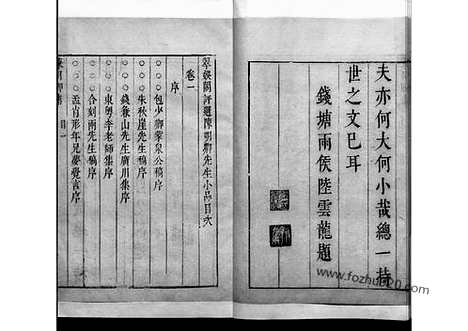 夫亦何大何小哉總一持
世之文已耳
錢塘雨侯陸雲龍題
翠娛閣評選陳明卿先生小品目次
卷一
序
包少卿蒙泉公稿序
朱秋崖先生稿序
錢㢲山先生廣川集序
東粵李老師集序
合刻兩先生稿序
孟肖形年兄夢覺言序
www.fozhu920.com